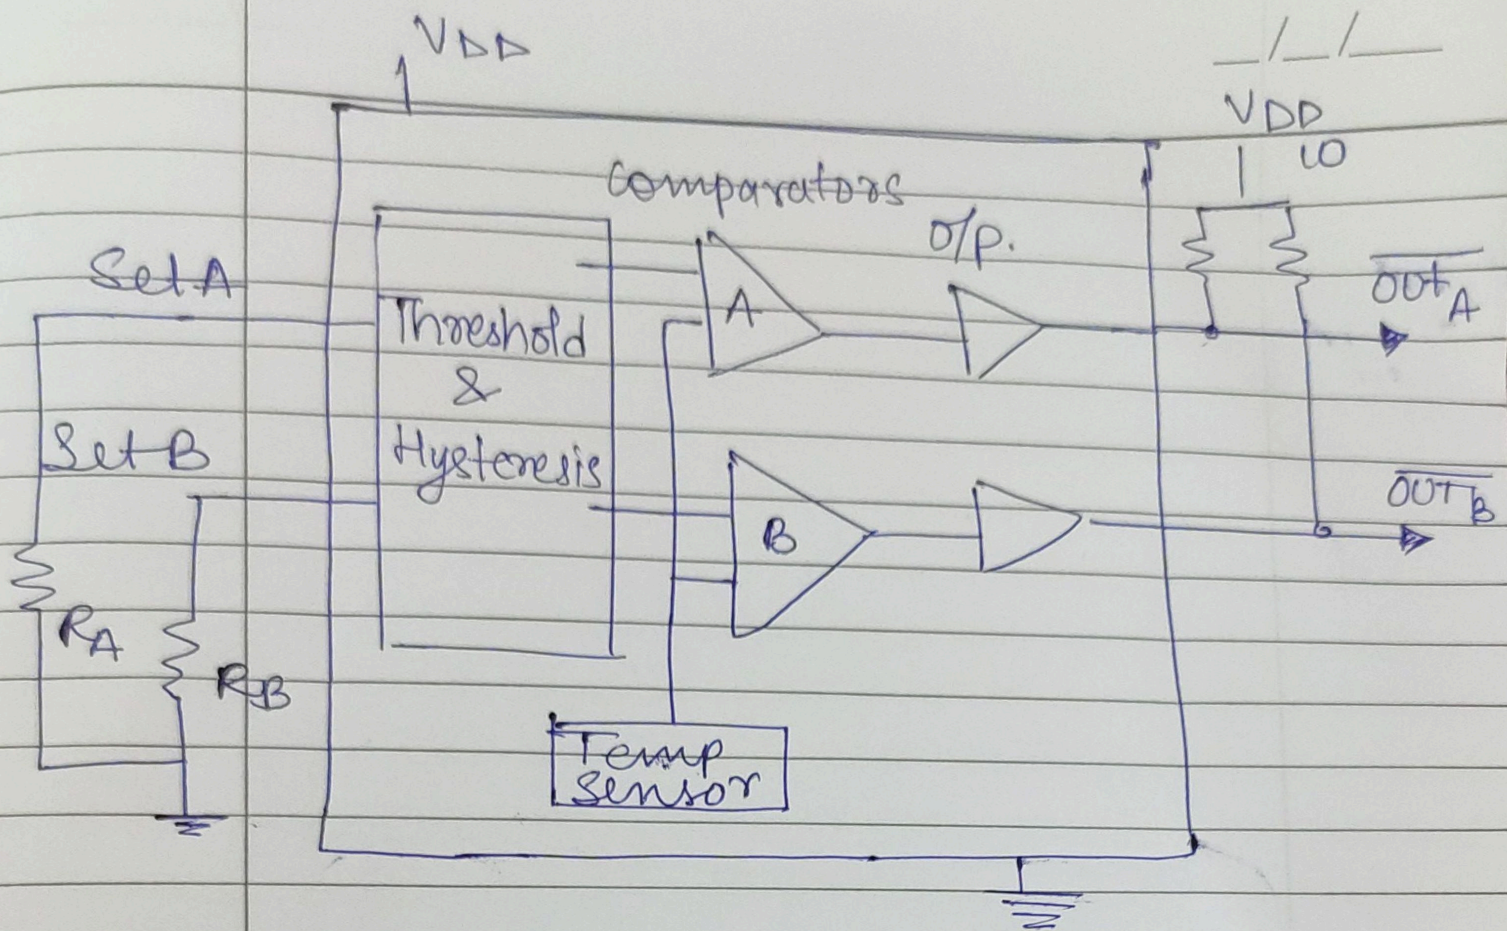 VDD
_/_/_
VDD
IO
Comparators
O/p.
Set A
OUT A
A
Threshold
&
Hysteresis
Set B
OUT B
B
RA
RB
Temp
Sensor